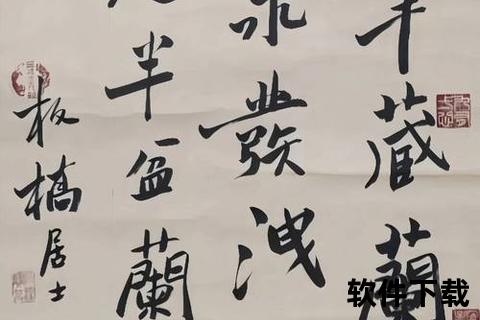 半藏蘭
求發洩
半盆蘭
板橋居士
软件下载